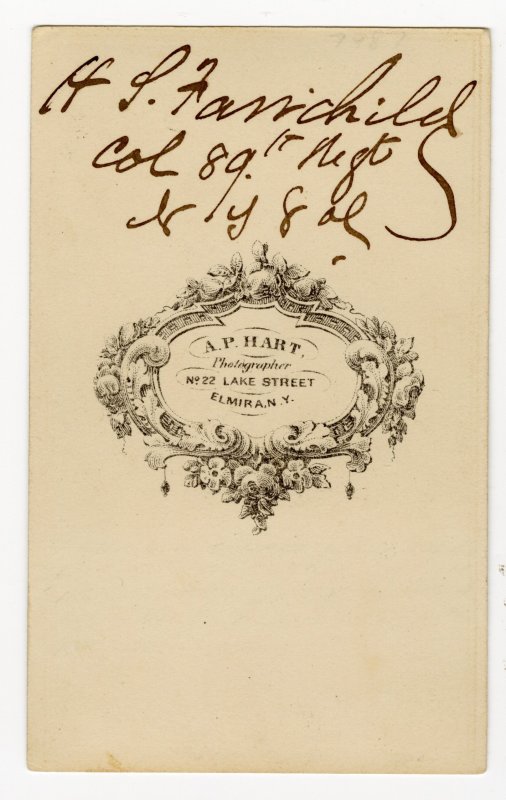 H S. Fairchild
Col 89th Regt
N Y Vol
A.P. HART,
Photographer
No 22 LAKE STREET
ELMIRA, N.Y.